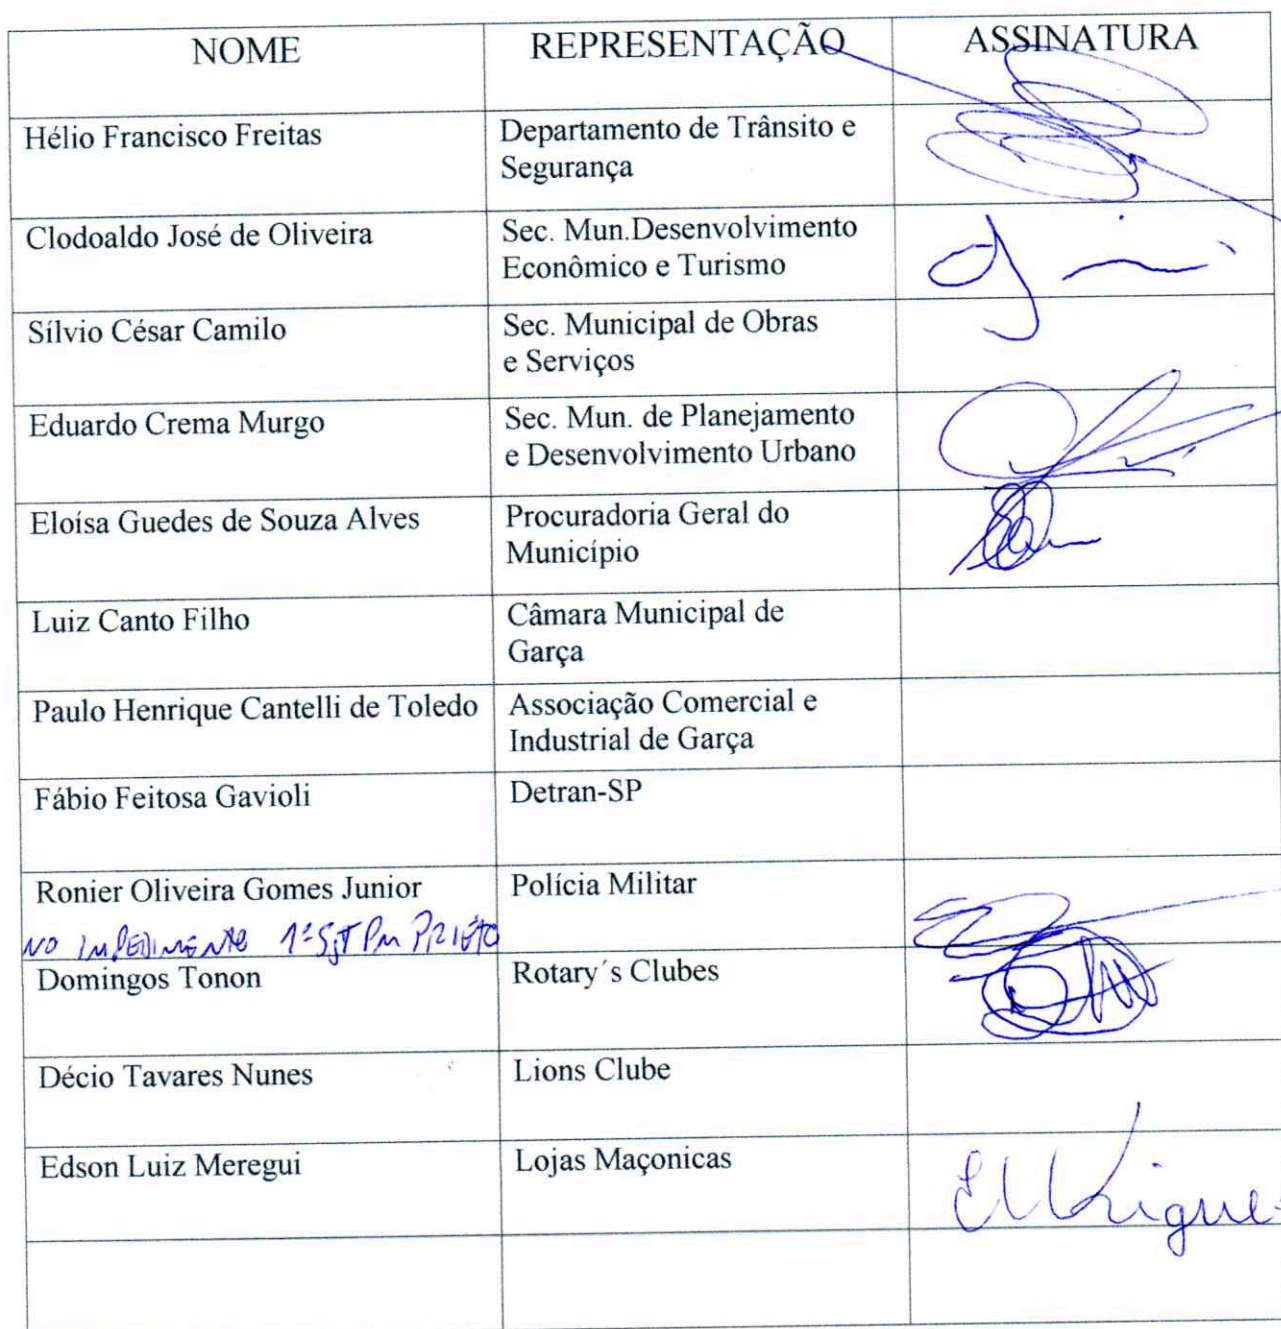 NOME
REPRESENTAÇÃO
ASSINATURA
Hélio Francisco Freitas
Departamento de Trânsito e
Segurança
Clodoaldo José de Oliveira
Sec. Mun.Desenvolvimento
Econômico e Turismo
Sílvio César Camilo
Sec. Municipal de Obras
e Serviços
Eduardo Crema Murgo
Sec. Mun. de Planejamento
e Desenvolvimento Urbano
Eloísa Guedes de Souza Alves
Procuradoria Geral do
Município
Luiz Canto Filho
Câmara Municipal de
Garça
Paulo Henrique Cantelli de Toledo
Associação Comercial e
Industrial de Garça
Fábio Feitosa Gavioli
Detran-SP
Ronier Oliveira Gomes Junior
NO IMPEDIMENTO 1º SGT PM PRIETO
Polícia Militar
Domingos Tonon
Rotary´s Clubes
Décio Tavares Nunes
Lions Clube
Edson Luiz Meregui
Lojas Maçonicas